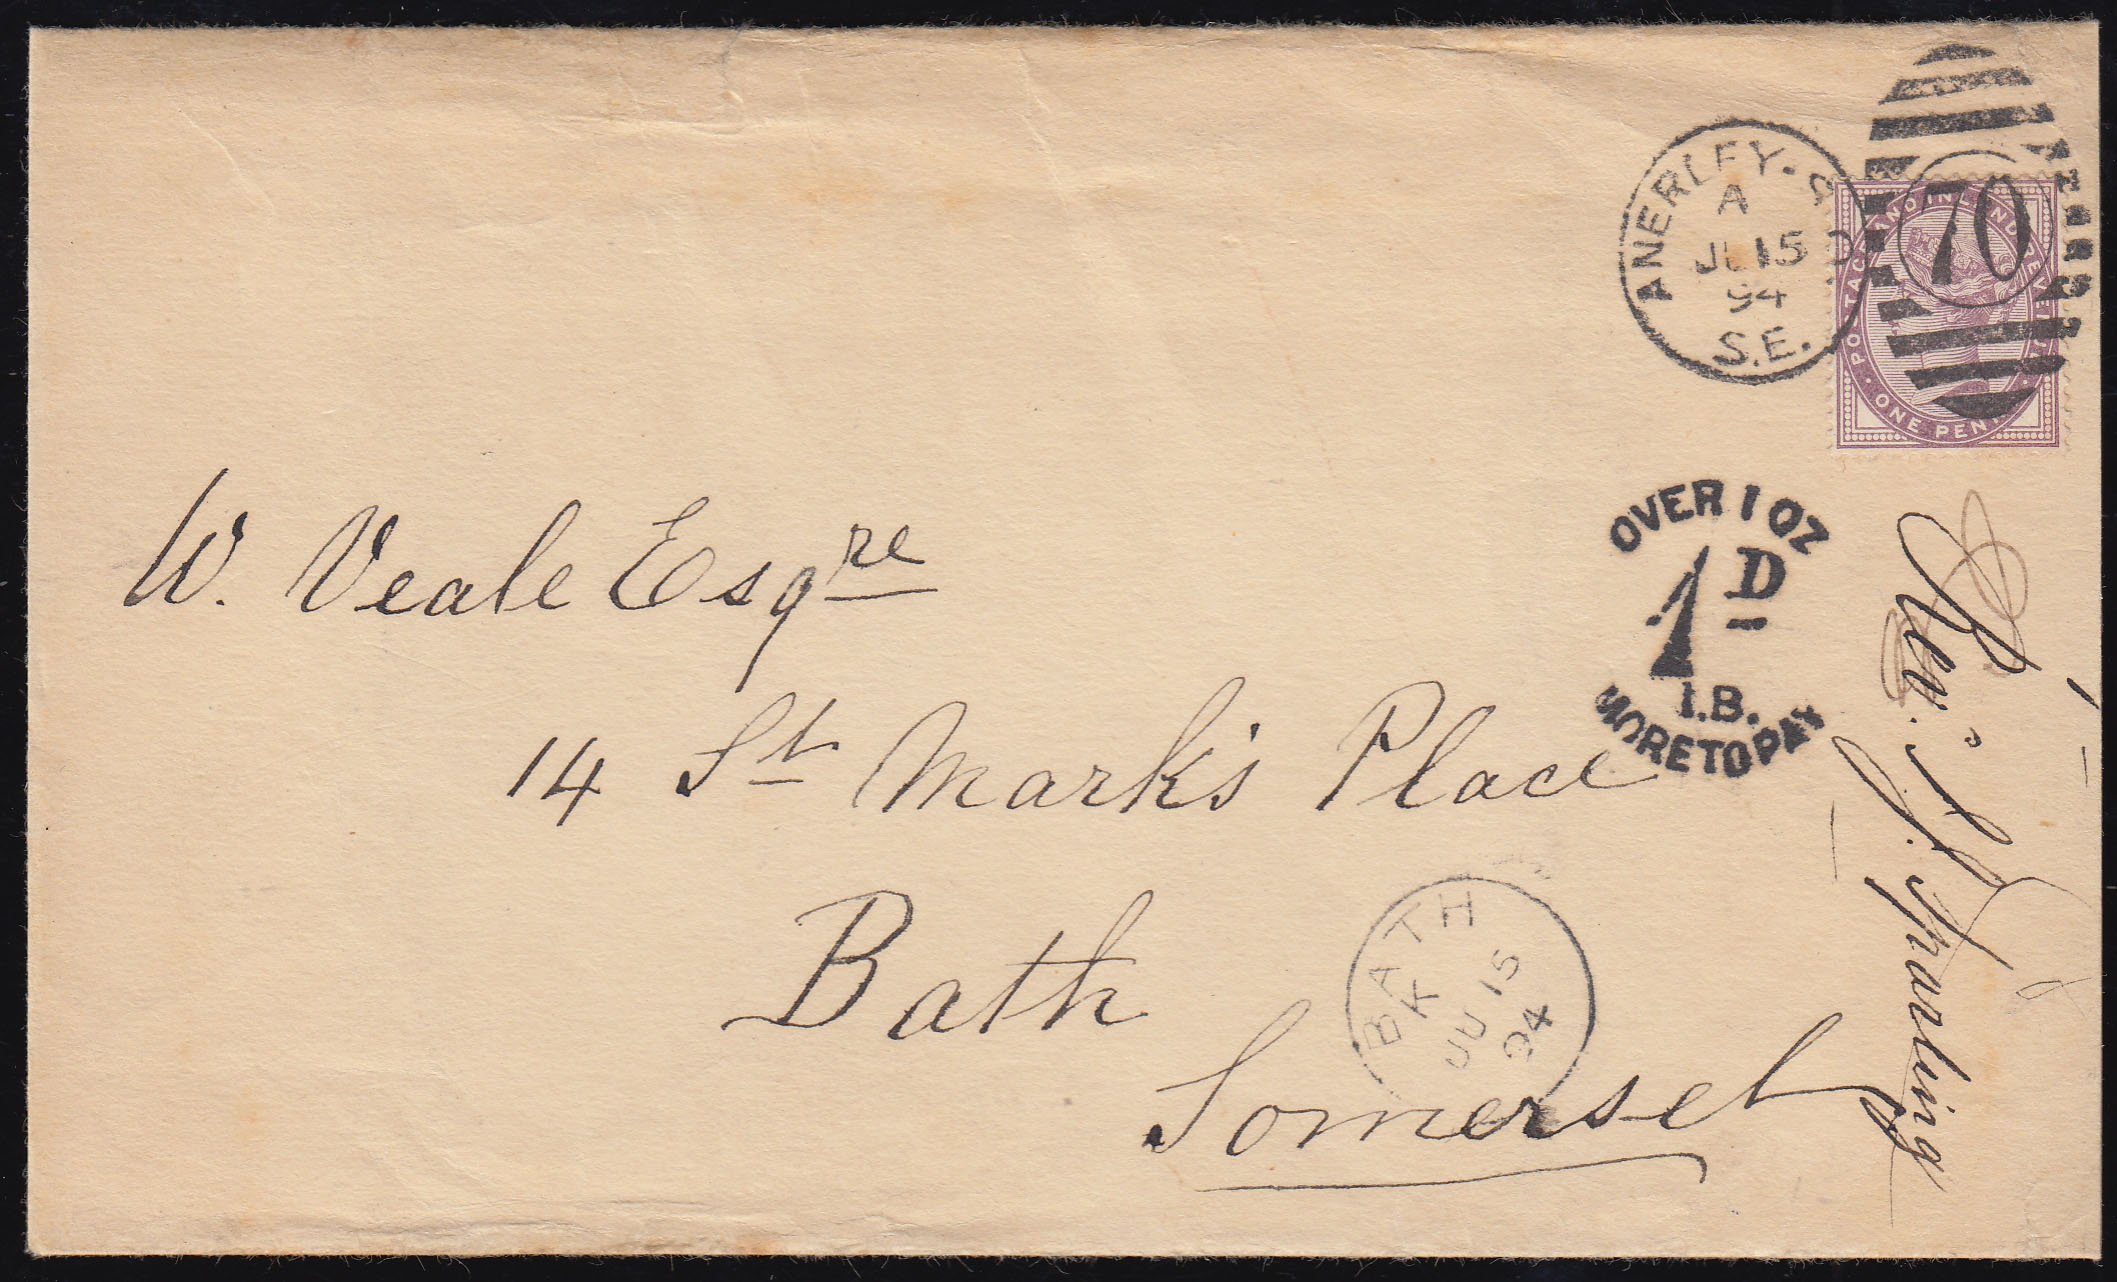 ANERLEY. S
A
JU 15
94
S.E.
70
POSTAGE AND INLAND REVENUE
ONE PENNY
OVER 1 OZ
1D
I.B.
MORE TO PAY
W. Veale Esqre
14 St Mark's Place
Bath
Somerset
BATH
K
JU 15
94
Rev. J. Sparling